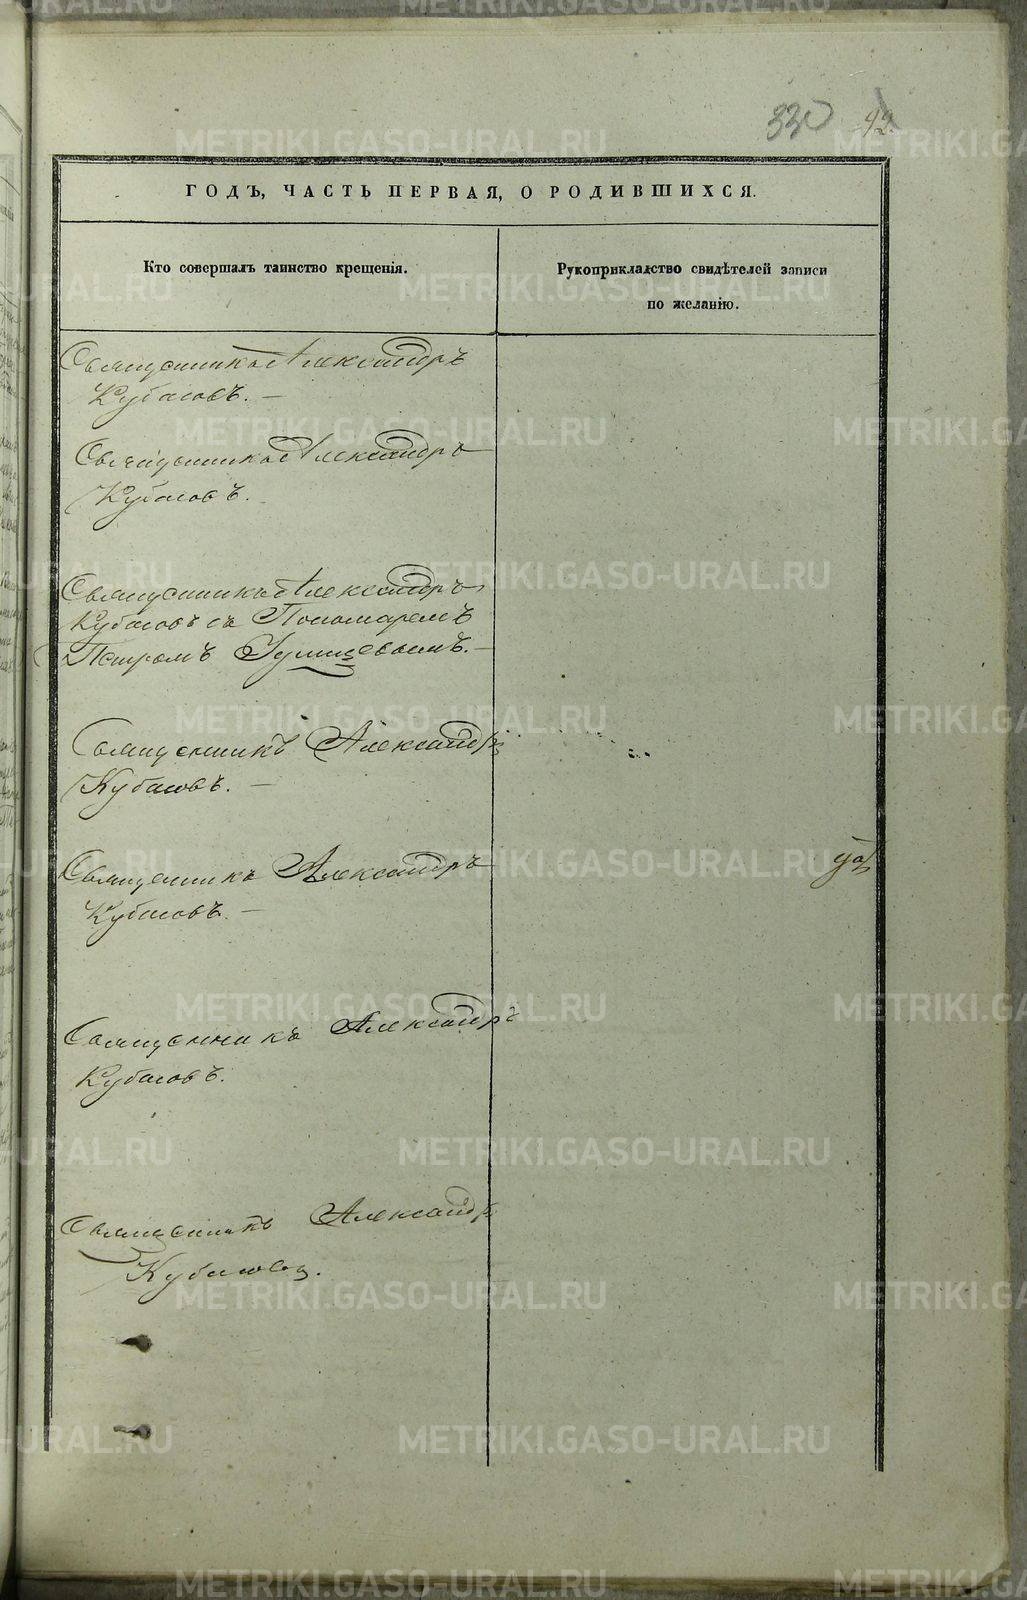 330 42.
ГОДЪ, ЧАСТЬ ПЕРВАЯ, О РОДИВШИХСЯ.
Кто совершалъ таинство крещенія.
Рукоприкладство свидѣтелей записи
по желанію.
Священникъ Александръ
Кубасовъ. —
Священникъ Александръ
Кубасовъ.
Священникъ Александръ
Кубасовъ съ Пономаремъ
Петромъ —
Священникъ Александръ
Кубасовъ. —
Священникъ Александръ
Кубасовъ. —
Священникъ Александръ
Кубасовъ.
Священникъ Александръ
Кубасовъ.
METRIKI.GASO-URAL.RU